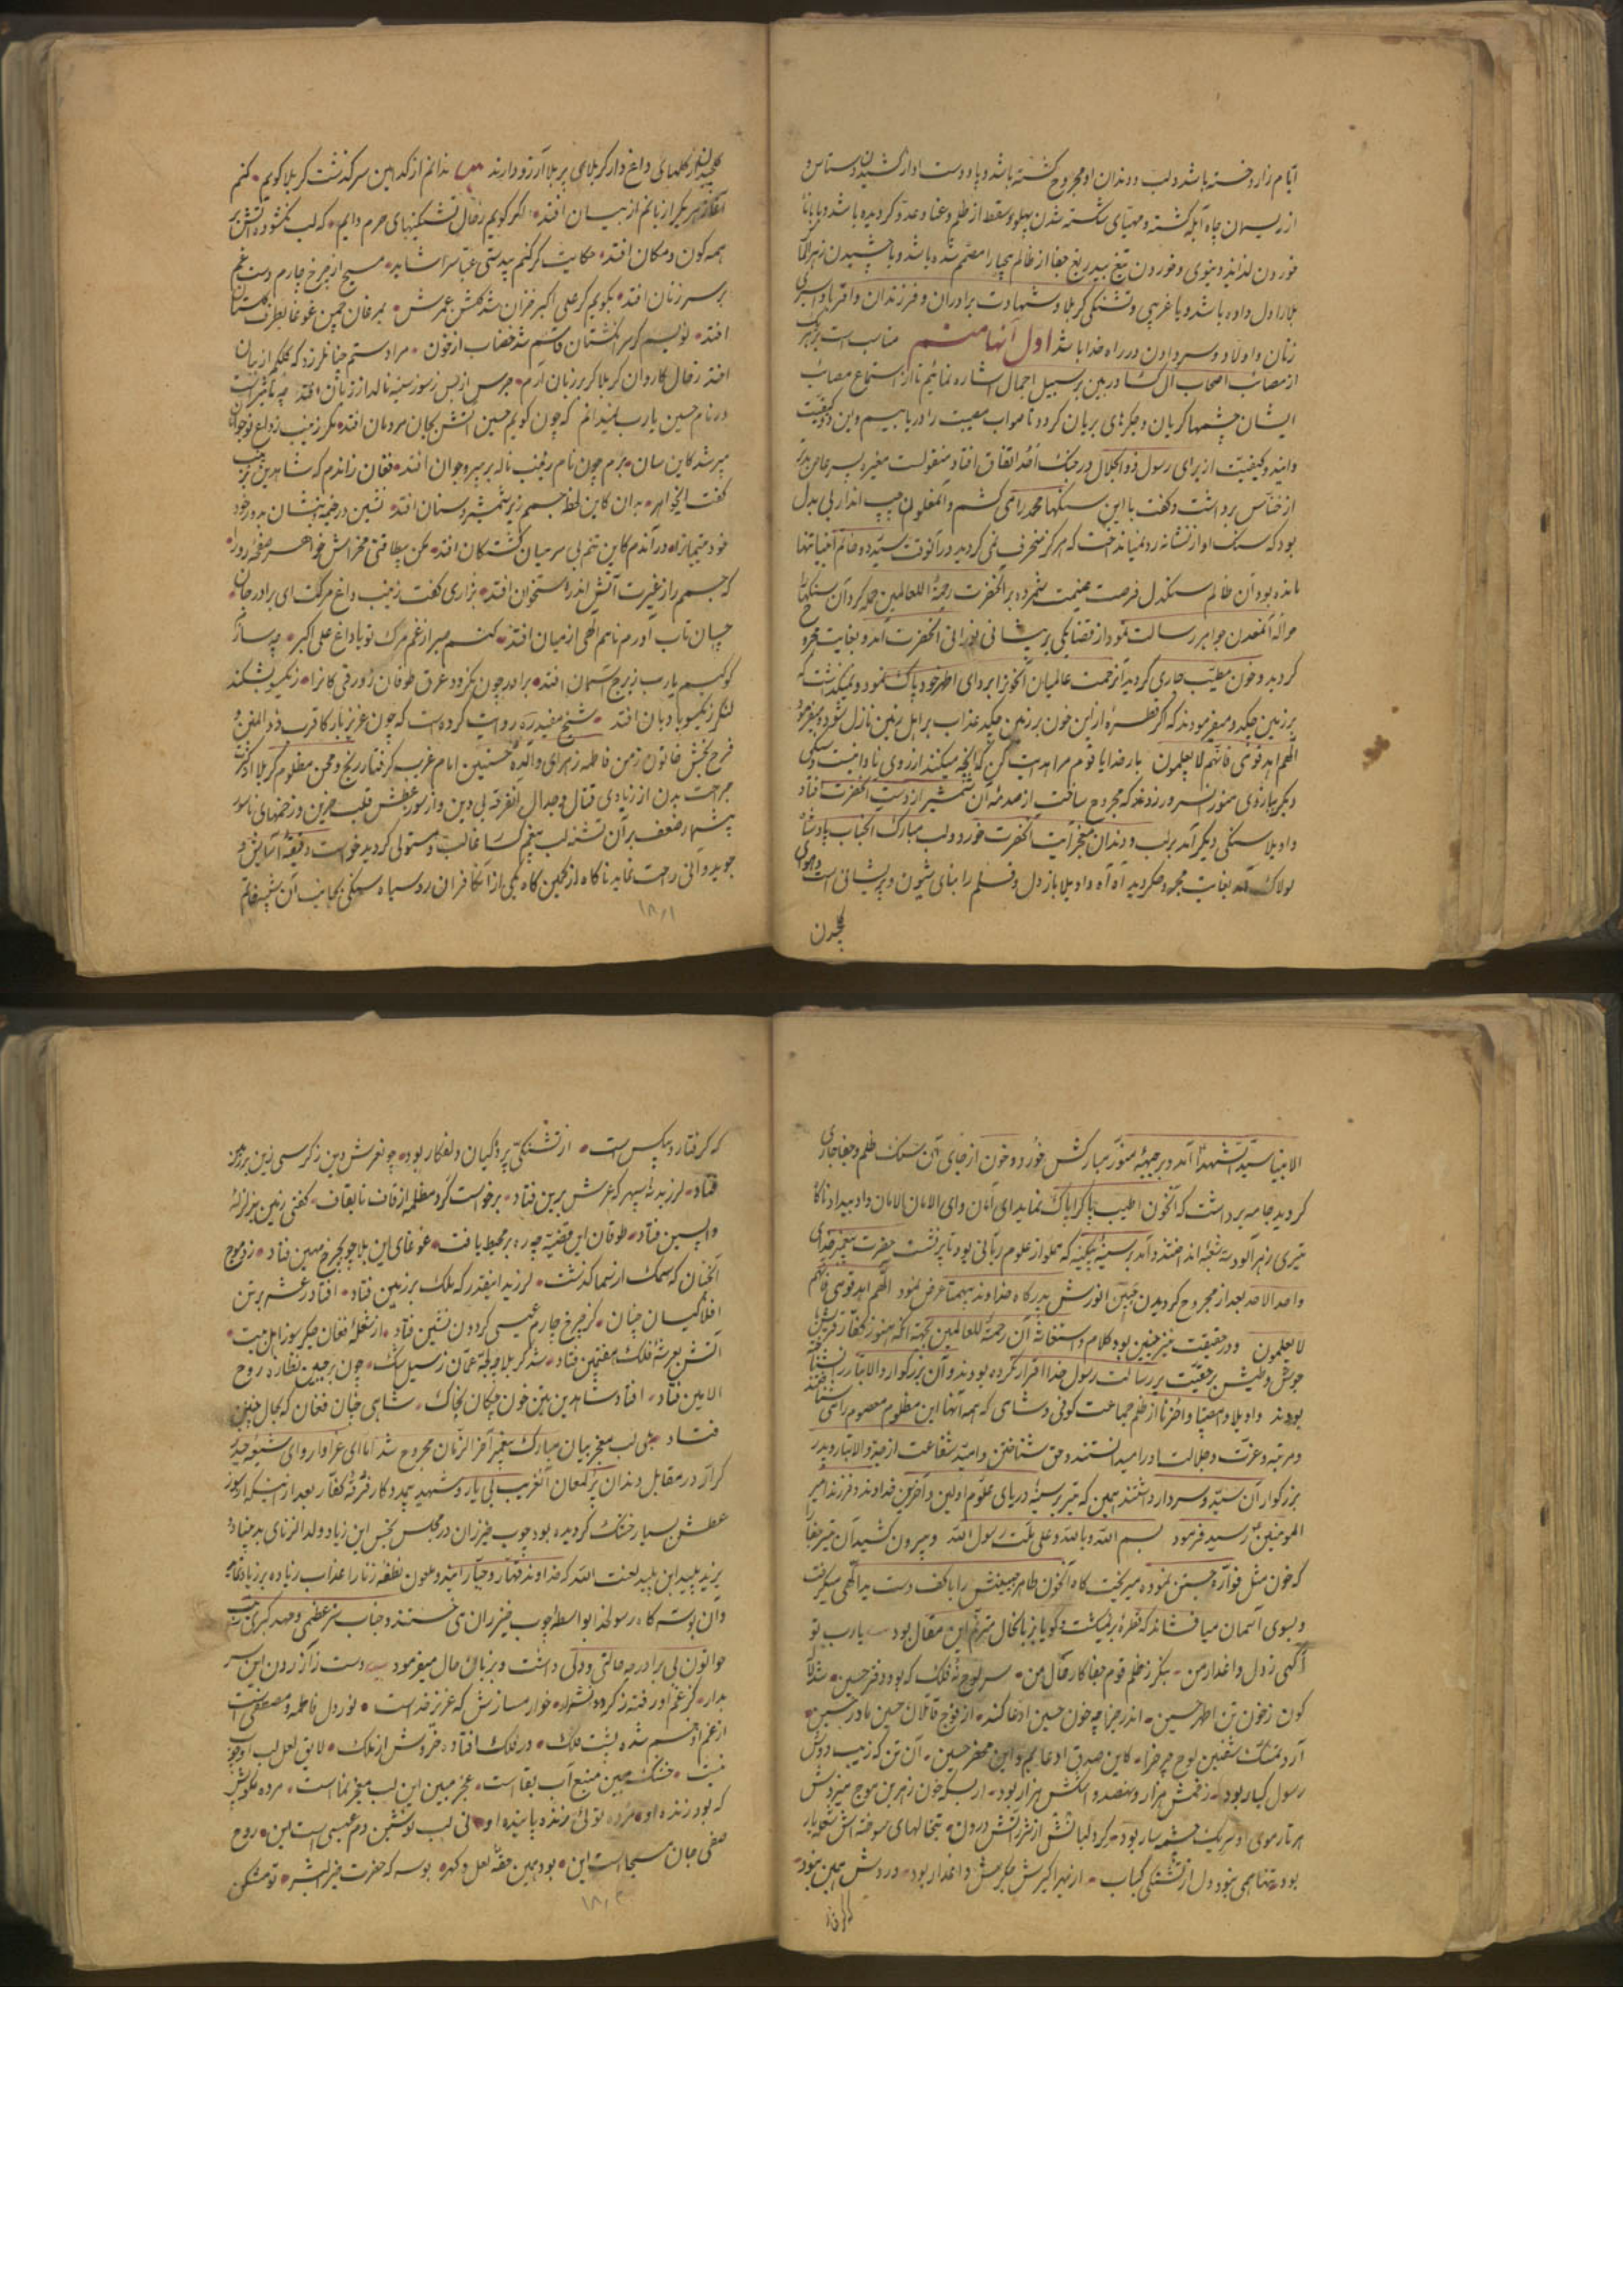 ایام زار و خسته باشد و لب و دندان او مجروح گشته باشد و پا و دست او از کشیدن دستاس
از ریسمان چاه آبله گشته و مهیای شکسته شدن پهلو و سقط از ظلم و عدو گردیده باشد و یا با
خوردن لذایذ دنیوی و خوردن تیغ بیدریغ جفا از ظالم بیحیا را مصمم شده باشد و یا چشیدن زهر
بلا را دل داده باشد و یا غریبی و تشنگی کربلا و شهادت برادران و فرزندان و اقربا و اسیری
زنان و اولاد و سر دادن در راه خدا باشد اول آنها منم مناسب است که
از مصائب اصحاب آل کسا در بین بر سبیل اجمال اشاره نمائیم تا از استماع مصائب
ایشان چشمها گریان و جگرهای بریان گردد تا صواب مصیبت را دریابیم و این دو کیفیت
از برای رسول ذوالجلال در جنگ احد اتفاق افتاد منقولست مغیره پسر عاص
برداشت و گفت با این سنگها محمد را می کشم و آنملعون چپ انداز بی بدل
بود که سنک او از نشانه رد نمیانداخت که هرگز منحرف نمی گردید در آنوقت سید دو عالم تنها
مانده بود آن ظالم سنگدل فرصت غنیمت شمرده بر آنحضرت رحمة اللعالمین حمله کرد آن سنگها
حواله آنمعدن جواهر رسالت نمود از قضا یکی بر پیشانی نورانی آنحضرت آمد و بغایت مجروح
گردید و خون مطیب جاری گردید آنرحمت عالمیان آنخون از ابروای اطهر خود پاک نمود و نمیگذاشت که
بر زمین چکد و میفرمودند که اگر قطرهٔ از این خون بر زمین چکد عذاب بر اهل زمین نازل شود و میفرمود
اللهم اهد قومی فانهم لا یعلمون بار خدایا قوم مرا هدایت کن که آنچه میکنند از روی نادانیست و سنگ
دیگر ببازوی منور آنسرور زدند که مجروح ساخت از صدمهٔ آن شمشیر از دست آنحضرت افتاد
واویلا سنگی دیگر آمد بر لب و دندان معجز آیت آنحضرت خورد و لب مبارک آنجناب پادشاه
لولاک آمد بغایت مجروح گردید آه آه واویلا باز دل و قلم را بنای شیون و پریشانی است
گلچیدن
گلچیدن از گلهای داغ دار کربلای پر بلا آرزو دارند ندانم از کدامین سرگذشت کربلا گویم کنم
آغاز هر یک از زبانم از بیان افتد اگر گویم ز حال تشنگیهای حرم دایم که لب نگشوده آتش بر
همه کون و مکان افتد حکایت گر کنم بیدستی عباس را شاید مسیح از چرخ چارم دست غم
بر سر زنان افتد بگویم گر علی اکبر خزان شد گلشن عمرش بمرغان چمن غوغا بطرف گلستان
افتد نویسم گر سر انگشتان قاسم شد خضاب از خون مرا دستم چنان لرزد که کلکم از بنان
افتد ز حال کاروان کربلا گر بر زبان آرم جرس از بس ز سوز سینه نالد از زبان افتد چه تأثیر است
در نام حسین یارب نمیدانم که چون گویم حسین آتش بجان مردمان افتد مگر زینب ز داغ نوجوان
میرد کاین سان برم چون نام زینب ناله بر پیر و جوان افتد فغان زاندم که شاه دین بزینب
گفت ایخواهر بدان کاین لحظه جسمم زیر شمشیر و سنان افتد نشین در خیمه بنشان بدور خود
خود یتیمانرا در آندم کاین تنم بی سر میان کشتگان افتد مکن بیطاقتی مخراش خواهر صفحه رو را
که جسمم را ز غیرت آتش اندر استخوان افتد بزاری گفت زینب داغ مرگت ای برادر جان
چسان تاب آورم ناسم الهی از میان افتد کنم صبر از غم مرگ تو با داغ علی اکبر چه سازم
کوکبم یارب ز برج آسمان افتد برادر چون نگردد غرق طوفان زورقی کانرا ز یکسو بشکند
لنگر ز یکسو بادبان افتد شیخ مفید ره روایت کرده است که چون عزیز بارگاه قرب ذوالمنن و
فرح بخش خاتون زمن فاطمه زهرا والده حسنین امام غریب گرفتار رنج و محن مظلوم کربلا از کثرت
جراحت بدن از زیادی قتال و جدال آنفرقه بی دین و از سوز عطش قلب حزین و زخمهای ناسور
بیشمار ضعف بر آن تشنه لب بیغمگسار غالب و مستولی گردید خواست دقیقهٔ آسایش
جوید و آنی راحت نماید ناگاه از کمین گاه یکی از آنکافران رو سیاه سنگی بجانب آن
۱۸۱
الانبیا سید الشهدا آمد و بر جبههٔ منور مبارکش خورد و خون از جای آن سنگ ظلم و جفا جاری
گردید جامه برداشت که آنخون اطیب پاک را پاک نماید ای امان وای الامان الامان داد بیداد ناگاه
تیری زهرآلود سه شعبه انداختند و آمد بر سینهٔ بی کینه که مملو از علوم ربانی بود تا پر نشست حضرت پیغمبر خدای
واحد الاحد بعد از مجروح گردیدن جبین انورش بدرگاه خداوند بیهمتا عرض نمود اللهم اهد قومی فانهم
لا یعلمون و در حقیقت نیز چنین بود کلام و استغاثهٔ آن رحمة للعالمین بجهة آنکه هنوز کفار قریش
بر رسالت رسول خدا اقرار نکرده بودند و آن بزرگوار والاتبار را نشناخته
بودند واویلا وا مصیبتا وا حزنا از ظلم جماعت کوفی و شامی که همه آنها این مظلوم معصوم را می شناختند
و مرتبه و عزت و جلالت او را میدانستند و حق شناختن و امید شفاعت از جد والاتبار و پدر
بزرگوار آن سید و سردار داشتند همین که تیر بر سینهٔ دریای علوم اولین و آخرین خداوند و فرزند امیر
المومنین ع رسید فرمود بسم الله و بالله و علی ملت رسول الله و بیرون کشید آن تیر جفا
که خون مثل فواره جستن نموده میریخت گاه آنخون طاهر را با کف دست ید اللهی میگرفت
و بسوی آسمان میافشاند که قطره بر نمیگشت گویا بزبانحال مترنم این مقال بود یارب تو
آگهی ز دل داغدار من بنگر ز ظلم قوم جفا کار حال من سر لوح نه فلک که بود دفتر حسین شد لاله
گون ز خون تن اطهر حسین اندر جزا چه خون حسین ادعا کند از فوج قاتلان حسین مادر حسین
آن تن که زیب دوش
رسول کبار بود زخمش هزار و نهصد و پنجاه هزار بود از بسکه خون زهر بن مویش میزد بجوش
هر تار موی او سر یک چشمه سار بود
بود تنها همی نبود دل از تشنگی کباب از بهر اکبرش جگرش داغدار بود دردش همین نبود
که گرفتار و بیکس است از تشنگی پردگیان دلفگار بود چو عرش دین ز کرسی زین بر زمین
فتاد لرزید نه سپهر که عرش برین فتاد برخواست گرد مظلمه از قاف تا بقاف گفتی زمین بزلزله
واپسین فتاد طوفان این قضیه چه ره بر محیط یافت غوغای این بلا چو بچرخ مهین فتاد زد موج
آنچنان که سمک از سما گذشت لرزید اینقدر که ملک بر زمین فتاد افتاد رعشه بر تن
افلاکیان چنان کز چرخ چارم عیسی گردون نشین فتاد از شعله فغان جگر سوز اهل بیت
آتش بعرشهٔ فلک هفتمین فتاد شد کربلا چو لجه عمان ز سیل اشک چون بر جبین نظاره روح
الامین فتاد افتاد شاه دین بزمین خون چکان بخاک شاهی چنان فغان که بحال چنین
فتاد لب معجز بیان مبارک پیغمبر آخر الزمان مجروح شد اما ای عزاداروای شیعه حیدر
کرار در مقابل دندان پر لمعان آنغریب بی یار و شهید بیمددکار فرقهٔ کفار بعد از اینکه از سوز
عطش بسیار خشک گردیده بود چوب خیزران در مجلس نحس ابن زیاد ولد الزنای بد بنیاد و
یزید پلید ابن پلید لعنت الله که خداوند قهار و جبار آن دو ملعون نطفه زنا را عذاب زیاده بر زیاد نماید
و آن بوسه گاه رسولخدا بواسطه چوب خیزران می خستند و جناب زینب
خواتون بی برادر چه حالتی و دلی داشت و بزبان حال میفرمود دست ز آزردن این سر
بدار کز غم او رفته ز گردون قرار خوار مسازش که عزیز خداست نور دل فاطمه و مصطفی است
از غم او خم شده پشت فلک در فلک افتاده خروش از ملک لایق لعل لب او چوب
نیست خشک مبین منبع آب بقا است عجز مبین این لب معجز نما است مرده مگویش
که بود زنده او مرده توئی زنده پاینده او نی لب نوشین دم عیسی است این روح
صفی جان مسیحا است این بود همین حقهٔ لعل و گهر بوسه گه حضرت خیر البشر تو مشکن
۱۸۲